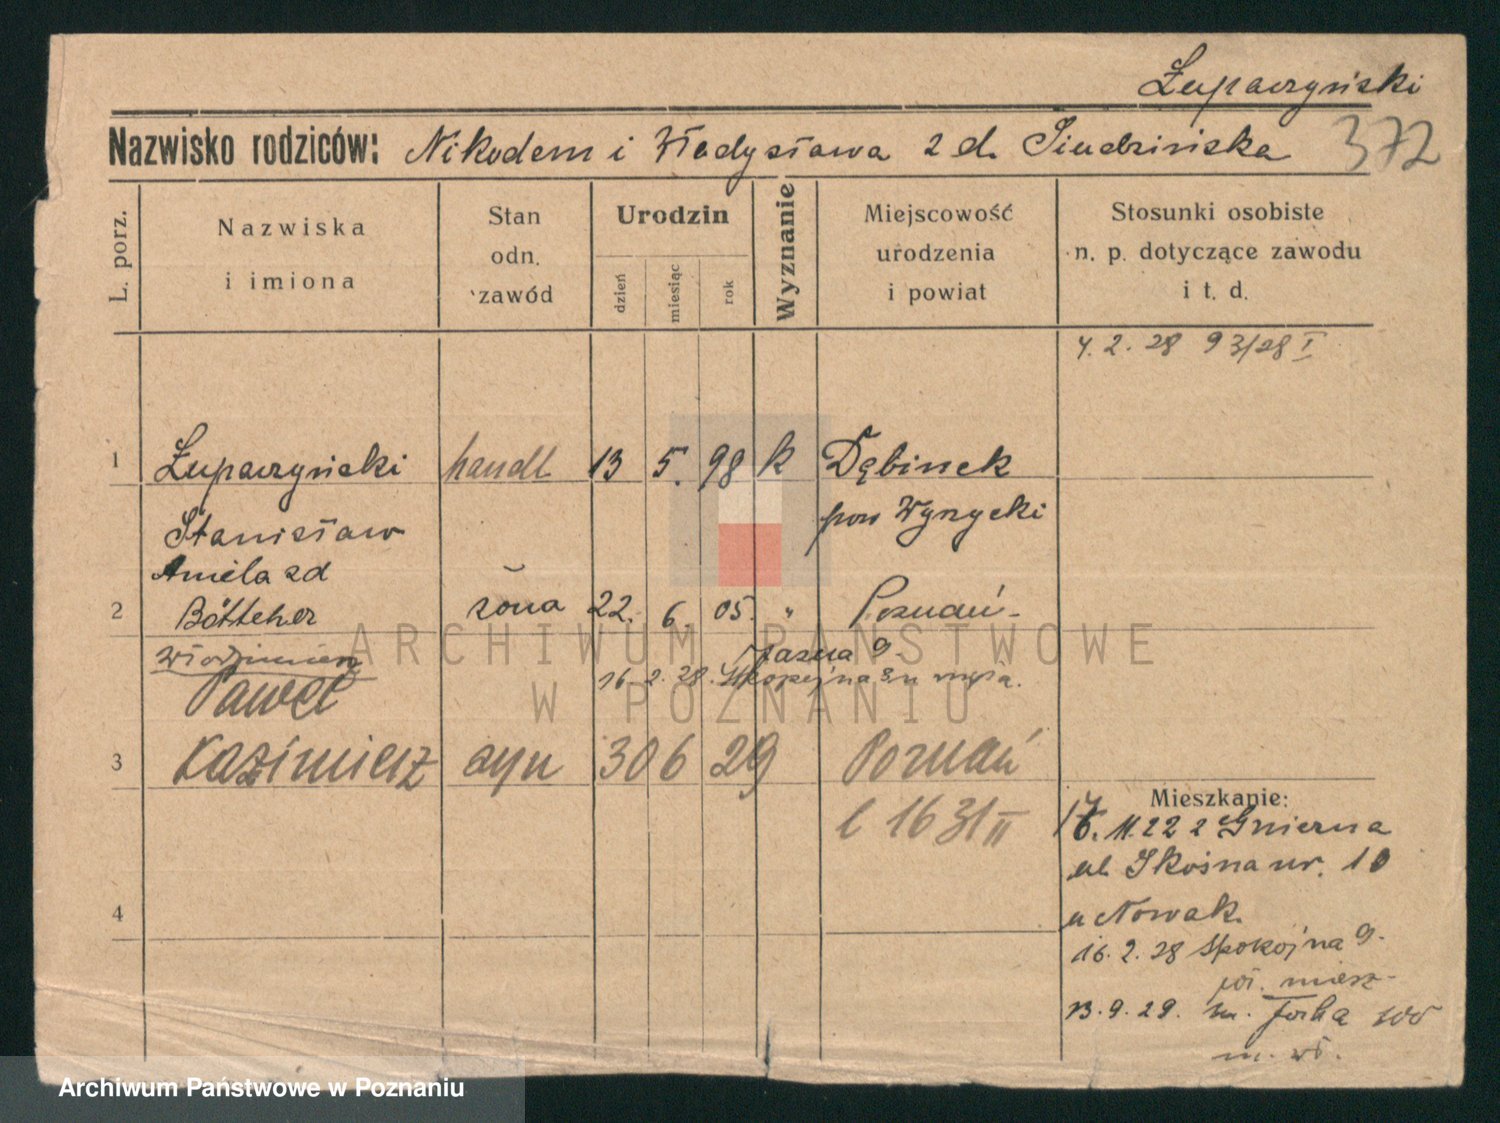 Łuparzyński
Nazwisko rodziców: Nikodem i Władysława z d. Siudzińska 372
L. porz.
Nazwiska
i imiona
Stan
odn.
zawód
Urodzin
dzień
miesiąc
rok
Wyznanie
Miejscowość
urodzenia
i powiat
Stosunki osobiste
n. p. dotyczące zawodu
i t. d.
4. 2. 28 93/28 I
1 Łuparzyński handl 13 5. 98 k Dębinek
Stanisław pow Wyrzycki
Aniela zd
2 Bötteher żona 22. 6. 05. " Poznań
Włodzimierz Jasna 9.
16. 2. 28.
Paweł
3 Kazimierz syn 30 6 29 Poznań
l 16 31 II
Mieszkanie:
11. 22 z Gnierna
ul. Skośna nr. 10
u Nowak.
16. 2. 28 Spokojna 9.
miesz.
13. 9. 29.
m. wł.
4
ARCHIWUM PAŃSTWOWE
W POZNANIU
Archiwum Państwowe w Poznaniu